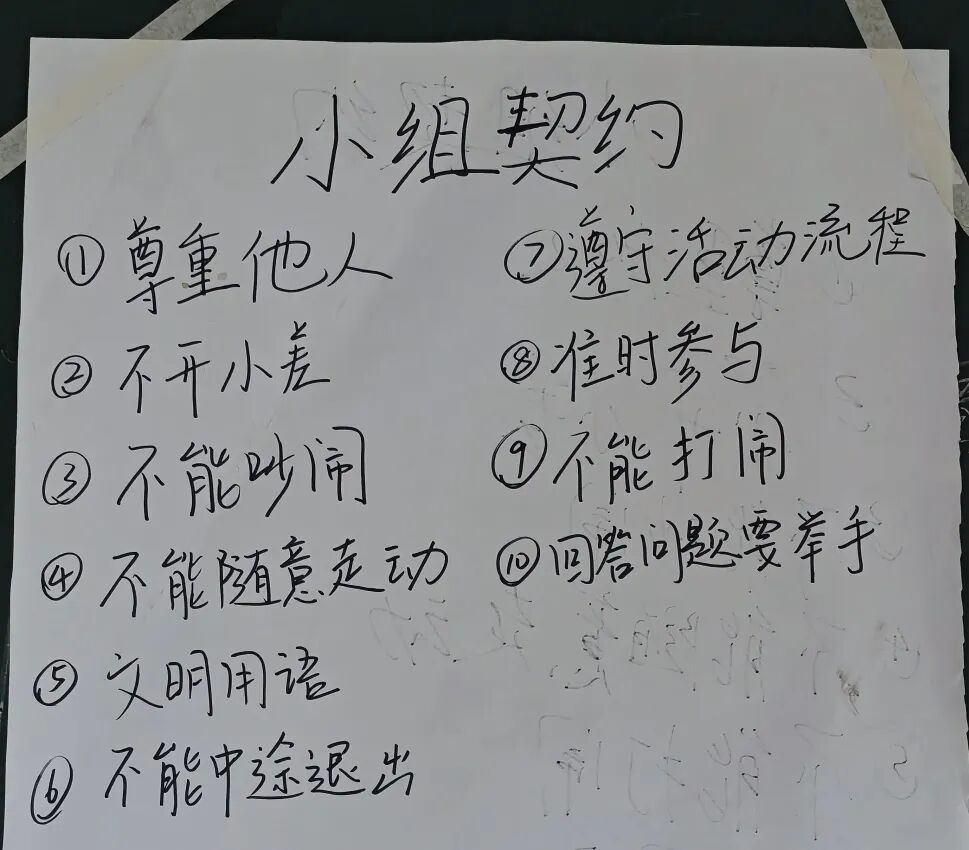 小组契约
① 尊重他人
② 不开小差
③ 不能吵闹
④ 不能随意走动
⑤ 文明用语
⑥ 不能中途退出
⑦ 遵守活动流程
⑧ 准时参与
⑨ 不能打闹
⑩ 回答问题要举手